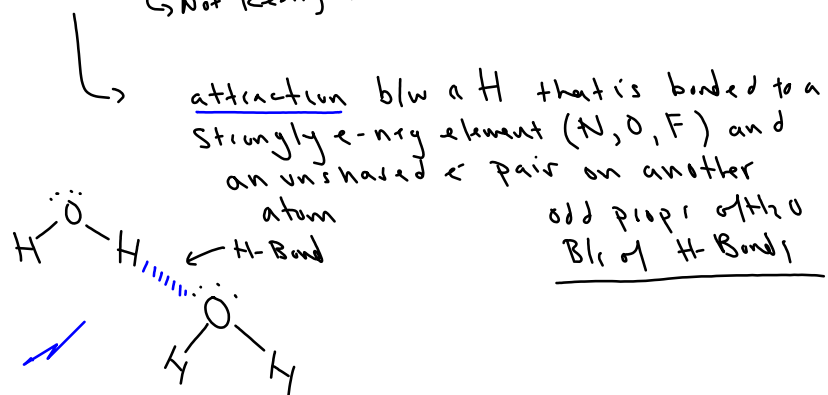 ↳ Not
attraction b/w a H that is bonded to a
strongly e-neg element (N, O, F) and
an unshared e⁻ pair on another
atom
odd props of H2O
B/c of H-Bonds
H-Bond
O
H H
O
H H